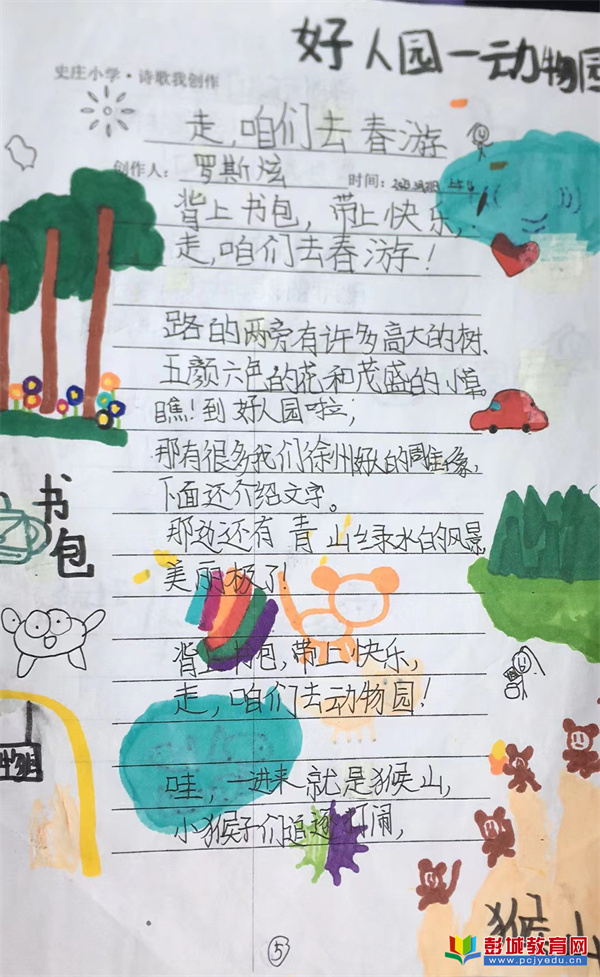 好人园一动物园
史庄小学·诗歌我创作
走,咱们去春游
创作人: 罗斯炫 时间:
背上书包,带上快乐,
走,咱们去春游!
路的两旁有许多高大的树、
五颜六色的花和茂盛的小草。
瞧!到好人园啦;
那有很多我们徐州好人的周佳像,
下面还介绍文字。
书包
那边还有青山绿水白的风景
美丽极了!
背上书包,带上快乐,
走,咱们去动物园!
物园
哇,一进来就是猴山,
小猴子们追逐打闹,
猴山
5
彭城教育网
www.pcjyedu.cn